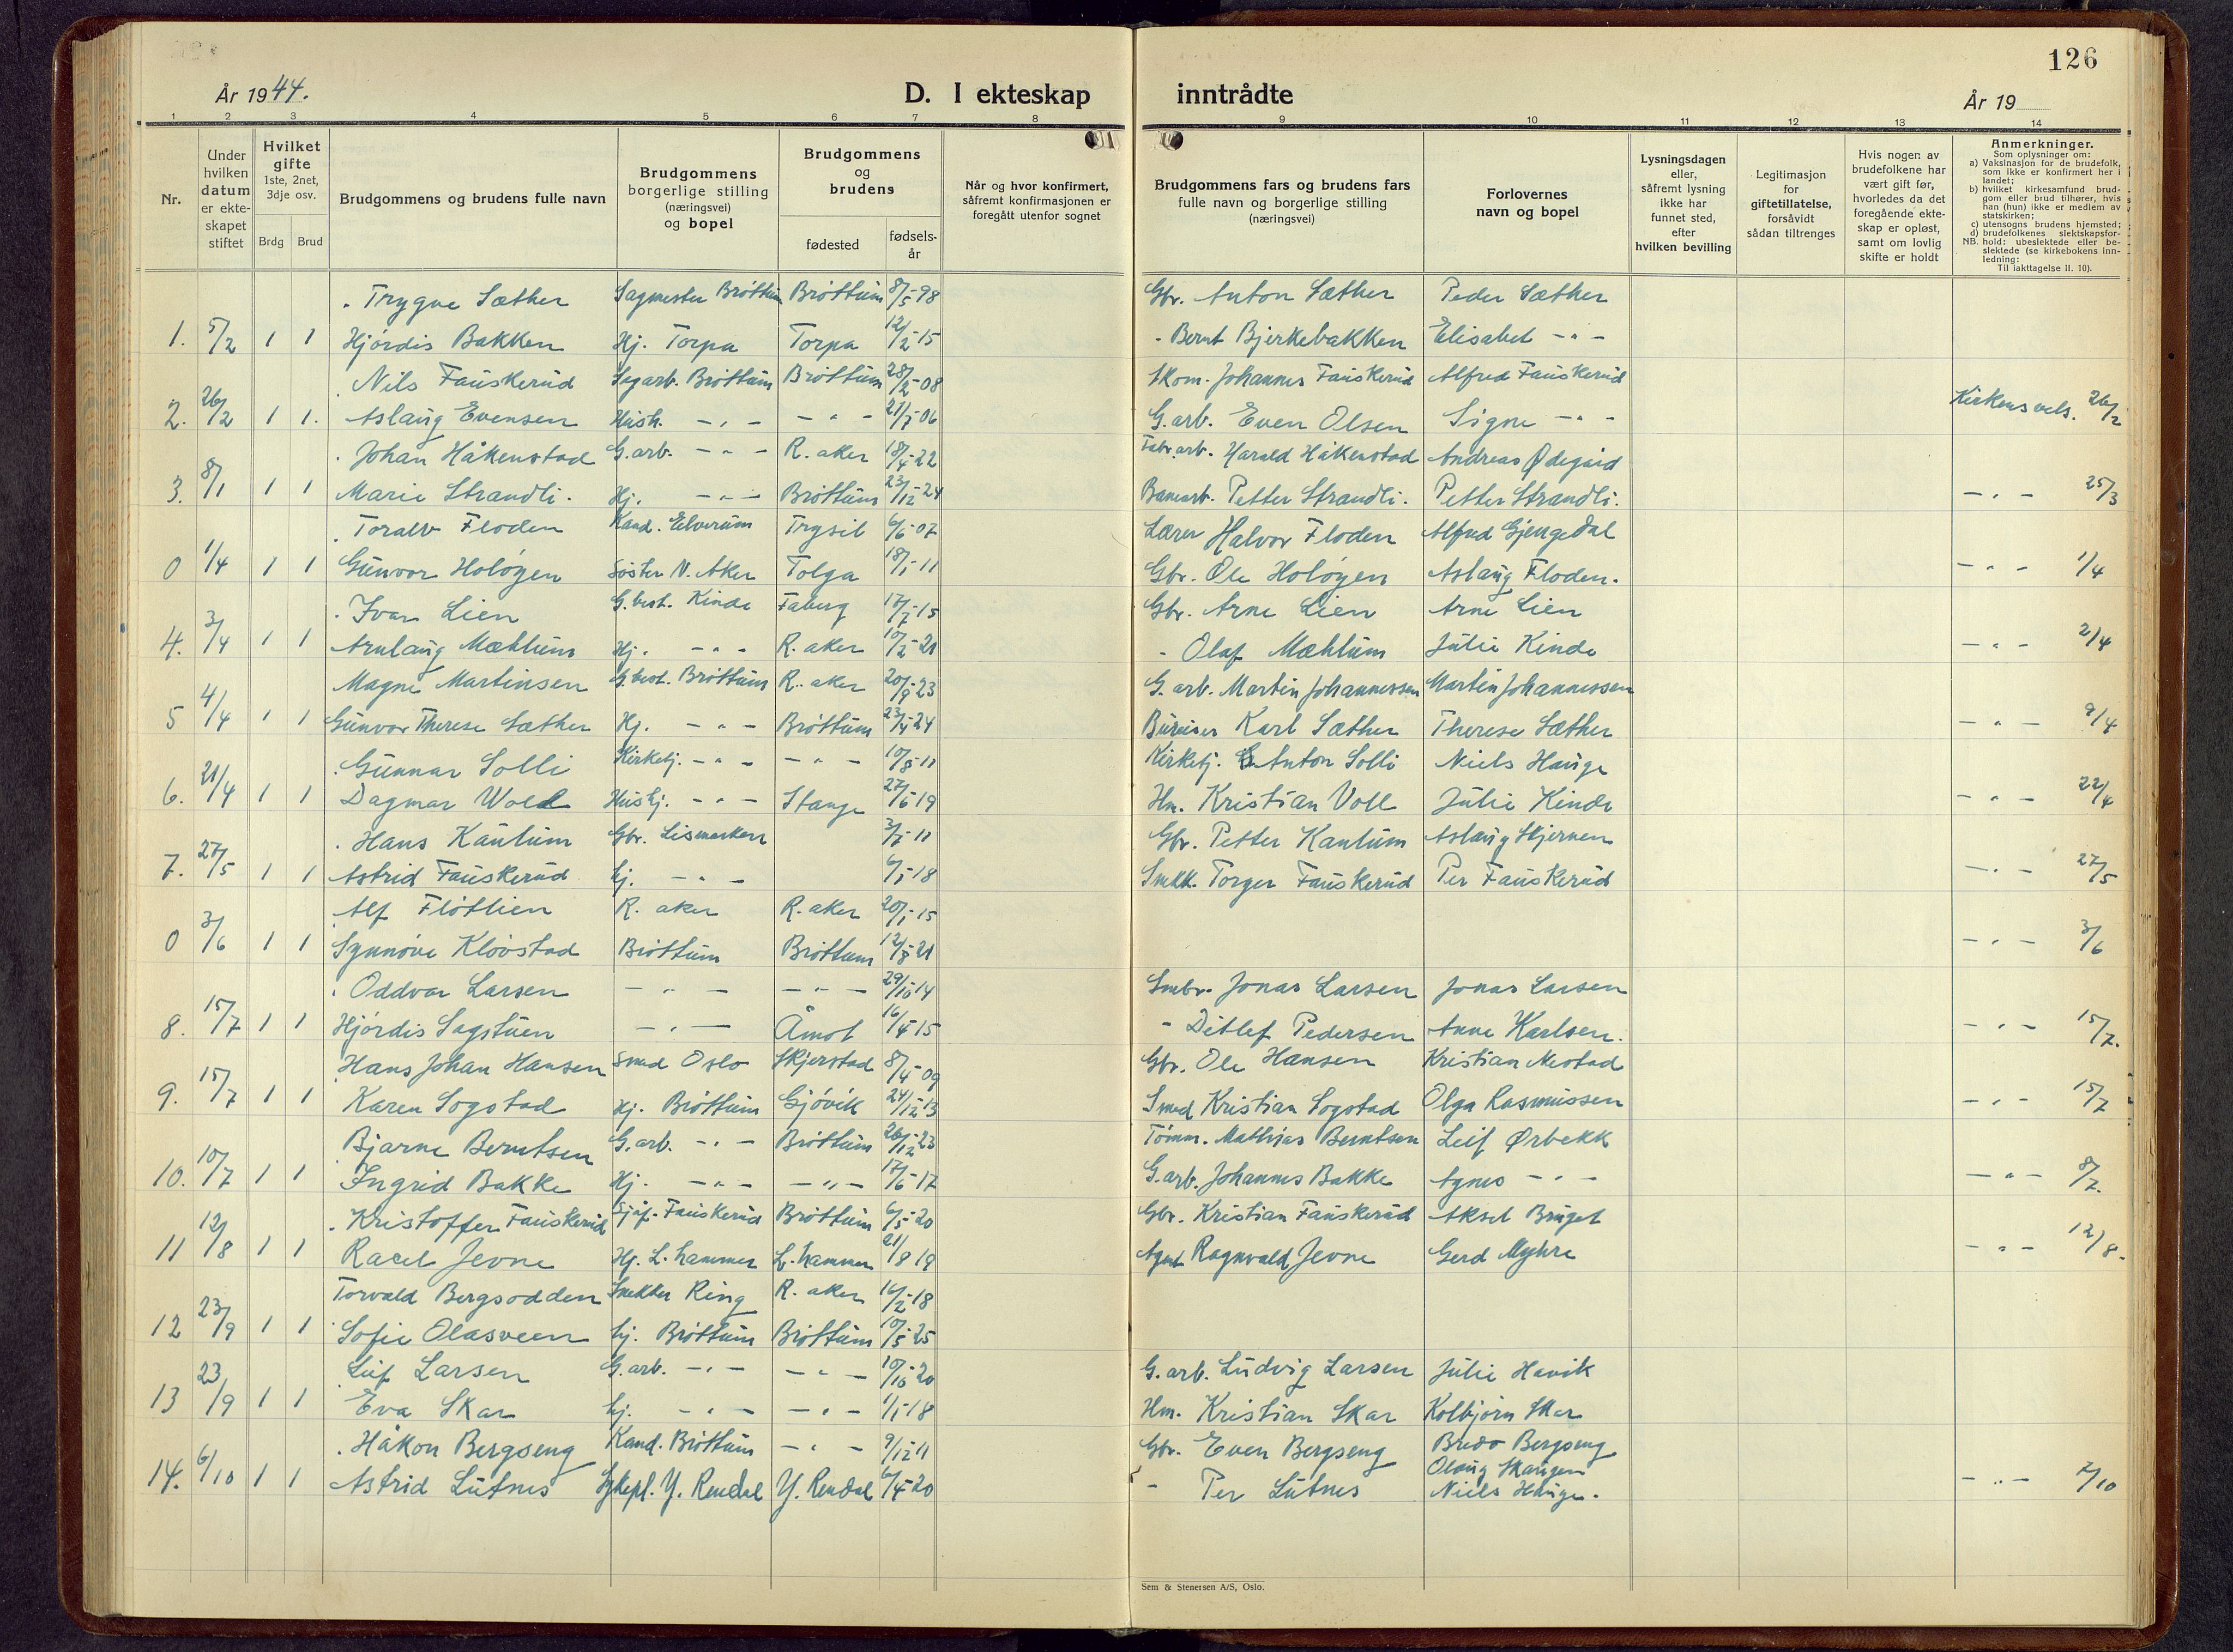 126
År 1944.
D. I ekteskap inntrådte
År 19
1 2 3 4 5 6 7 8 9 10 11 12 13 14
Nr.
Under hvilken datum er ekteskapet stiftet
Hvilket gifte 1ste, 2net, 3dje osv.
Brdg Brud
Brudgommens og brudens fulle navn
Brudgommens borgerlige stilling (næringsvei) og bopel
Brudgommens og brudens
fødested
fødselsår
Når og hvor konfirmert, såfremt konfirmasjonen er foregått utenfor sognet
Brudgommens fars og brudens fars fulle navn og borgerlige stilling (næringsvei)
Forlovernes navn og bopel
Lysningsdagen eller, såfremt lysning ikke har funnet sted, efter hvilken bevilling
Legitimasjon for giftetillatelse, forsåvidt sådan tiltrenges
Hvis nogen av brudefolkene har vært gift før, hvorledes da det foregående ekteskap er opløst, samt om lovlig skifte er holdt
Anmerkninger.
Som oplysninger om:
a) Vaksinasjon for de brudefolk, som ikke er konfirmert her i landet;
b) hvilket kirkesamfund brudgom eller brud tilhører, hvis han (hun) ikke er medlem av statskirken;
c) utensogns brudens hjemsted;
d) brudefolkenes slektskapsforhold: ubeslektede eller beslektede (se kirkebokens innledning:
NB.
Til iakttagelse II. 10).
. Trygve Sæther Sagmester Brøttum Brøttum 8/5-98 Gbr. Anton Sæther Peder Sæther
1. 5/2 1 1 Hjördis Bakken Hj. Torpa Torpa 12/2-15 - Bernt Bjerkebakken Elisabet - " -
. Nils Fauskerud Sagarb. Brøttum Brøttum 28/2-08 Skom. Johannes Fauskerud Alfred Fauskerud
2. 26/2 1 1. Aslaug Evensen Hush. - " - - " - 21/7-06 G.arb. Even Olsen Signe - " - Kirkens vels. 26/2
. Johan Håkenstad G.arb. - " - R. aker 18/4-22 Fabr.arb. Harald Håkenstad Andreas Ødegård
3. 8/1 1 1 Marie Strandli. Hj. - " - Brøttum 23/12-24 Banearb. Petter Strandli. Petter Strandli. - " - 25/3
. Toralv Floden Kand. Elverum Trysil 6/6-07 Lærer Halvor Floden Alfred Gjengedal
0 1/4 1 1 Gunvor Holøyen Søster N. Aker Tolga 18/1-11 Gbr. Ole Holøyen Aslaug Floden. - " - 1/4
. Ivar Lien G.best. Kinde Faberg 17/7-15 Gbr. Arne Lien Arne Lien
4. 3/4 1 1 Arnlaug Mæhlum Hj. - " - R. aker 10/2-21 - Olaf Mæhlum Julie Kinde - " - 2/4
Magne Martinsen G.best. Brøttum R. aker 20/9-23 G. arb. Martin Johannessen Martin Johannessen
5 4/4 1 1 Gunvor Therese Sæther Hj. - " - Brøttum 23/4-24 Bureiser Karl Sæther Therese Sæther - " - 9/4
. Gunnar Solli Kirketj. - " - - " - 10/8-11 Kirketj. Anton Solli Niels Hauge
6. 21/4 1 1 Dagmar Wold Hushj. - " - Stange 27/6-19 Hm. Kristian Voll Julie Kinde - " - 22/4
. Hans Kaulum Gbr. Lismarken 3/7-11 Gbr. Petter Kaulum Aslaug Skjernen
7. 27/5 1 1 Astrid Fauskerud hj. - " - 6/1-18 Snekk. Torger Fauskerud Per Fauskerud - " - 27/5
Alf Fløtlien R. aker R. aker 20/1-15
0 3/6 1 1 Synnøve Kløvstad Brøttum Brøttum 12/8-21 - " - 3/6
. Oddvar Larsen - " - - " - 29/10-14 Smbr. Jonas Larsen Jonas Larsen
8. 15/7 1 1 Hjørdis Sagstuen - " - Åmot 16/4-15 - Ditlef Pedersen Anne Karlsen. - " - 15/7.
Hans Johan Hansen Smed Oslo Skjerstad 8/4-09 Gbr. Ole Hansen Kristian Nestad
9. 15/7 1 1 Karen Sogstad Hj. Brøttum Gjøvik 24/12-13 Smed Kristian Sogstad Olga Rasmussen - " - 15/7
Bjarne Berntsen G.arb. - " - Brøttum 26/12-23 Tømm. Mathias Berntsen Leif Ørbekk
10. 10/7 1 1 Ingrid Bakke Hj. - " - - " - 17/6-17 G.arb. Johannes Bakke Agnes - " - - " - 8/7.
. Kristoffer Fauskerud Sjåf. Fauskerud Brøttum 6/5-20 Gbr. Kristian Fauskerud Aksel Bruget
11 12/8 1 1 Racel Jevne Hj. L.hammer L.hammer 21/8 19 Agent Ragnvald Jevne Gerd Myhre - " - 12/8.
Torvald Bergsodden Snekker Ring R. aker 16/2-18
12 23/9 1 1 Sofie Olasveen hj. Brøttum Brøttum 10/5-25
Leif Larsen G.arb. - " - - " - 10/10-20 G. arb. Ludvig Larsen Julie Havik
13 23/9 1 1 Eva Skar hj. - " - - " - 1/1-18 Hm. Kristian Skar Kolbjørn Skar
. Håkon Bergseng Kand. Brøttum - " - 9/12-11 Gbr. Even Bergseng Bredo Bergseng
Olaug Skaugen
14. 6/10 1 1 Astrid Lutnes Sykepl. Y. Rendal Y. Rendal 6/4-20 - Per Lutnes Niels Hauge. - " - 7/10
Sem & Stenersen A/S, Oslo.